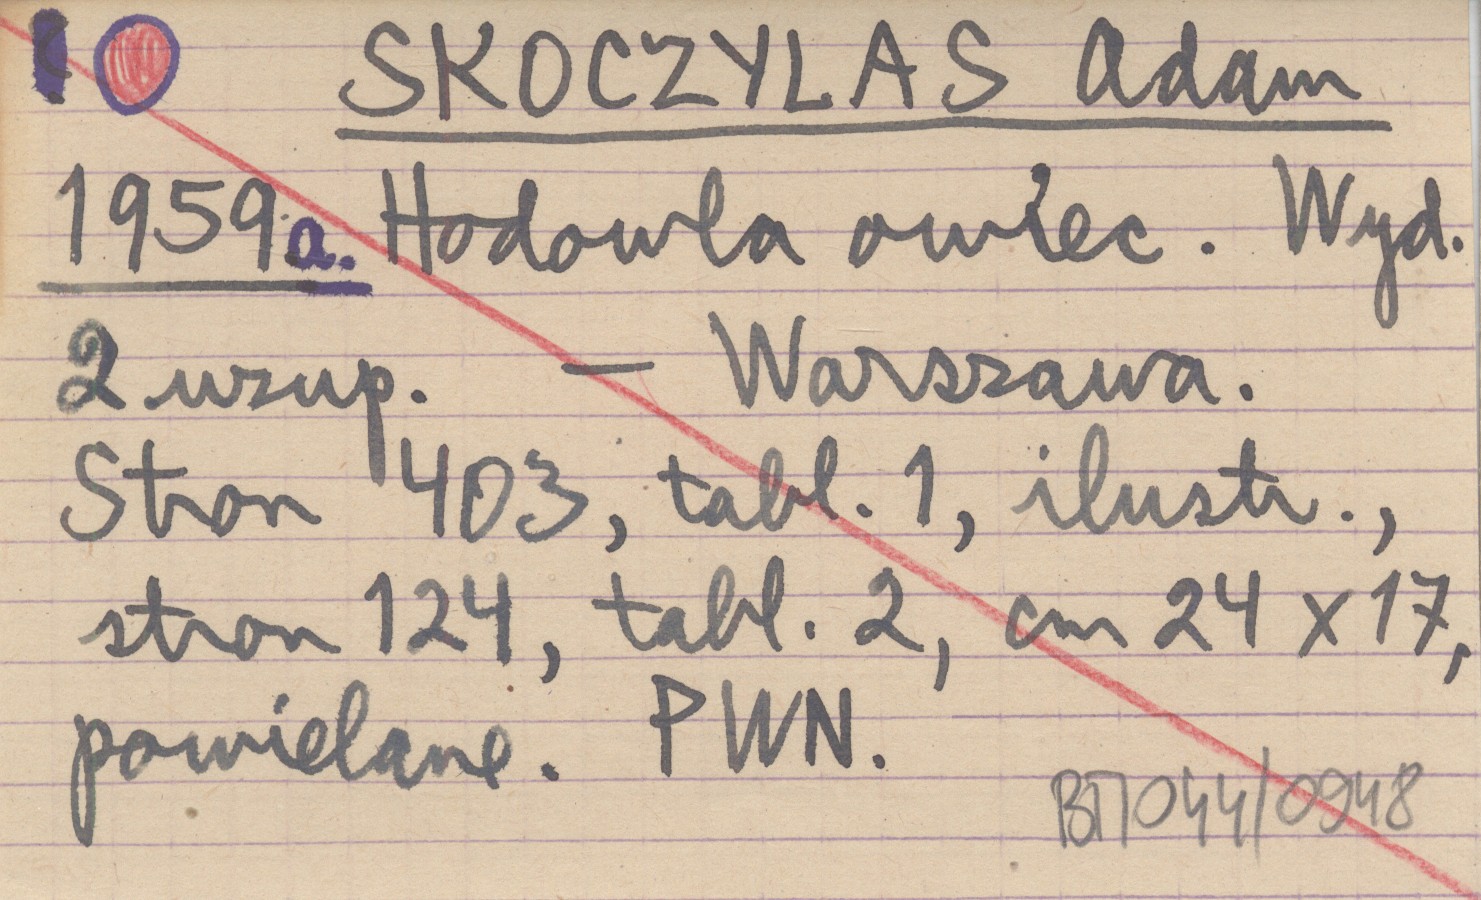 ! O SKOCZYLAS Adam
1959a. Hodowla owiec. Wyd.
2 uzup. — Warszawa.
Stron 403, tabl. 1, ilustr.,
stron 124, tabl. 2, cm 24 x 17,
powielane. PWN.
BTT 044/0948